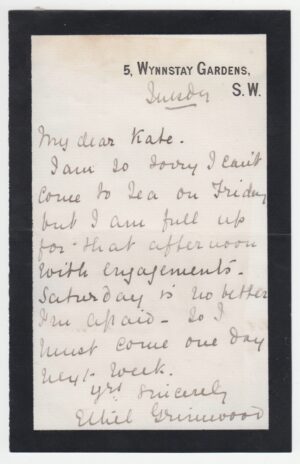 5, WYNNSTAY GARDENS,
S.W.
Tuesday
My dear Kate.
I am so sorry I can't
come to tea on Friday
but I am full up
for that afternoon
with engagements.
Saturday is no better
I'm afraid - so I
must come one day
next week.
yrs sincerely
Ethel Grimwood